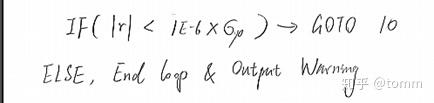 IF( |r| < 1E-6 × σy0 ) → GOTO 10
ELSE, End loop & Output Warning
知乎 @tomm